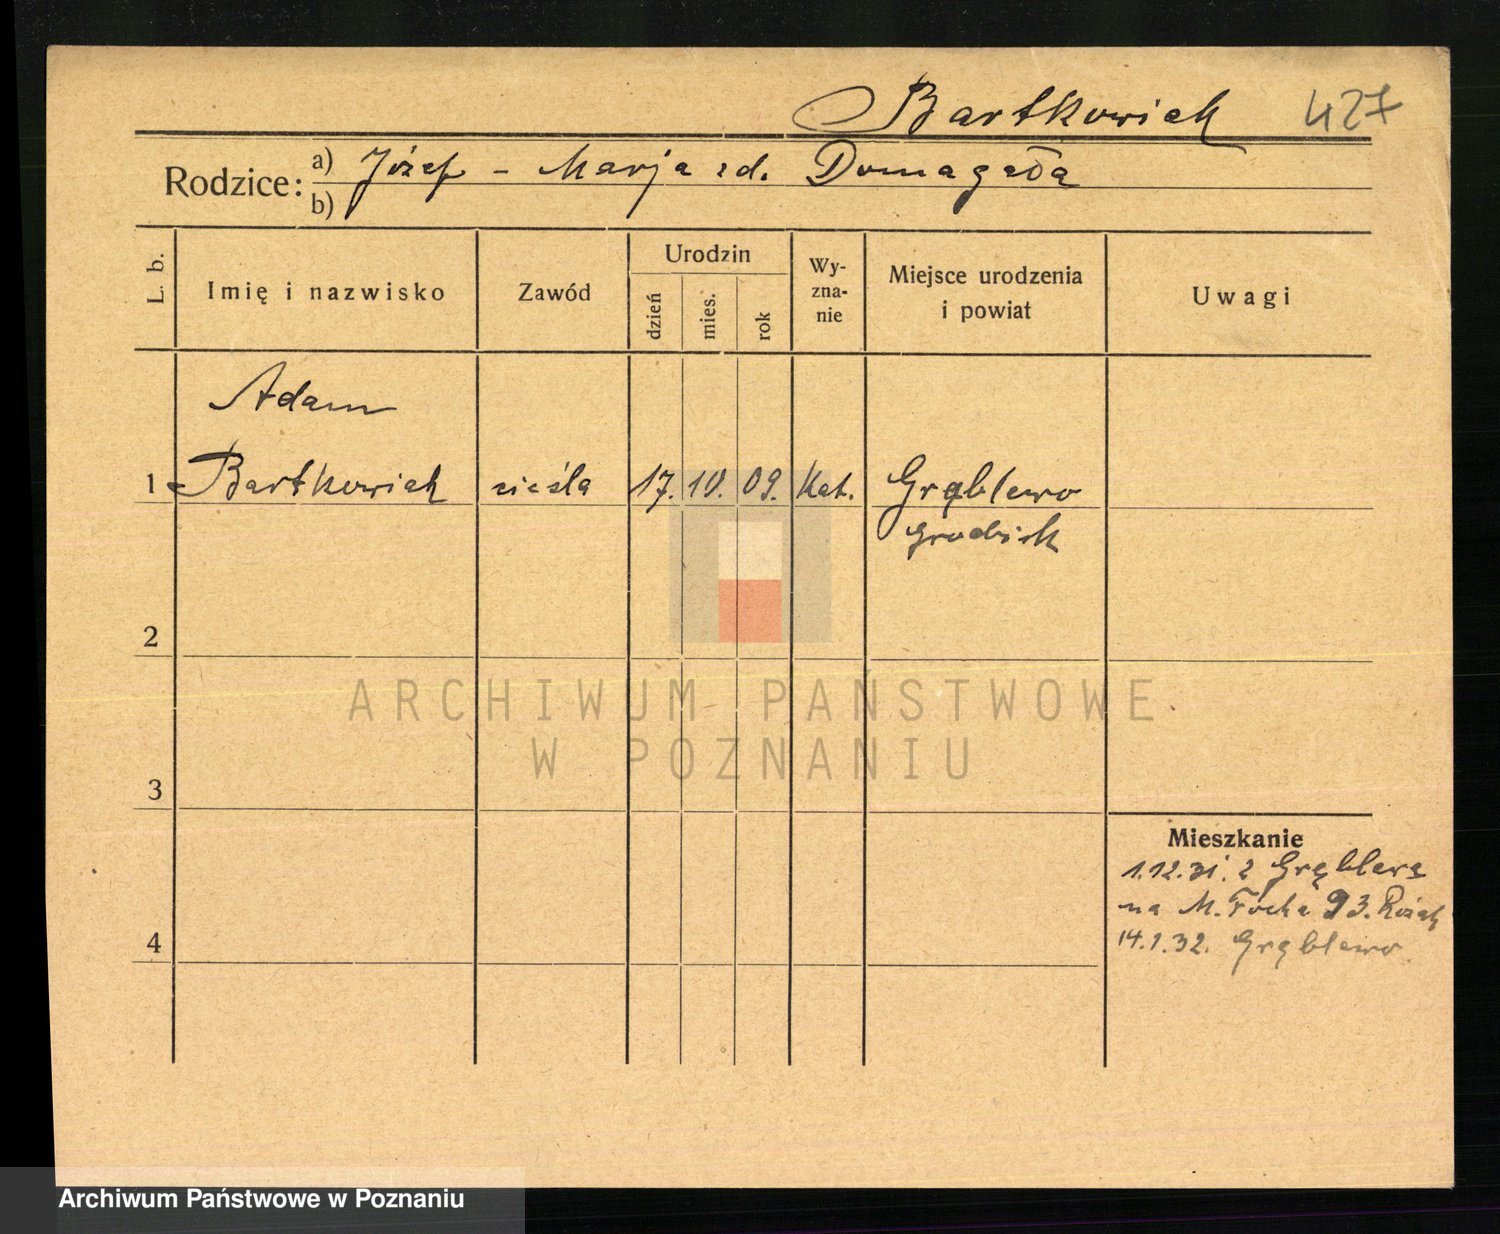 Bartkowiak 427
Rodzice: a) Józef - Marja zd. Domagała
b)
L. b.
Imię i nazwisko
Zawód
Urodzin
dzień
mies.
rok
Wy-
zna-
nie
Miejsce urodzenia
i powiat
Uwagi
Adam
1 Bartkowiak cieśla 17. 10. 09. Kat. Grąblewo
Grodzisk
2
ARCHIWUM PAŃSTWOWE
W POZNANIU
3
Mieszkanie
1.12.31. z Grąblewa
na M. Focha 93.
4
14.1.32. Grąblewo.
Archiwum Państwowe w Poznaniu